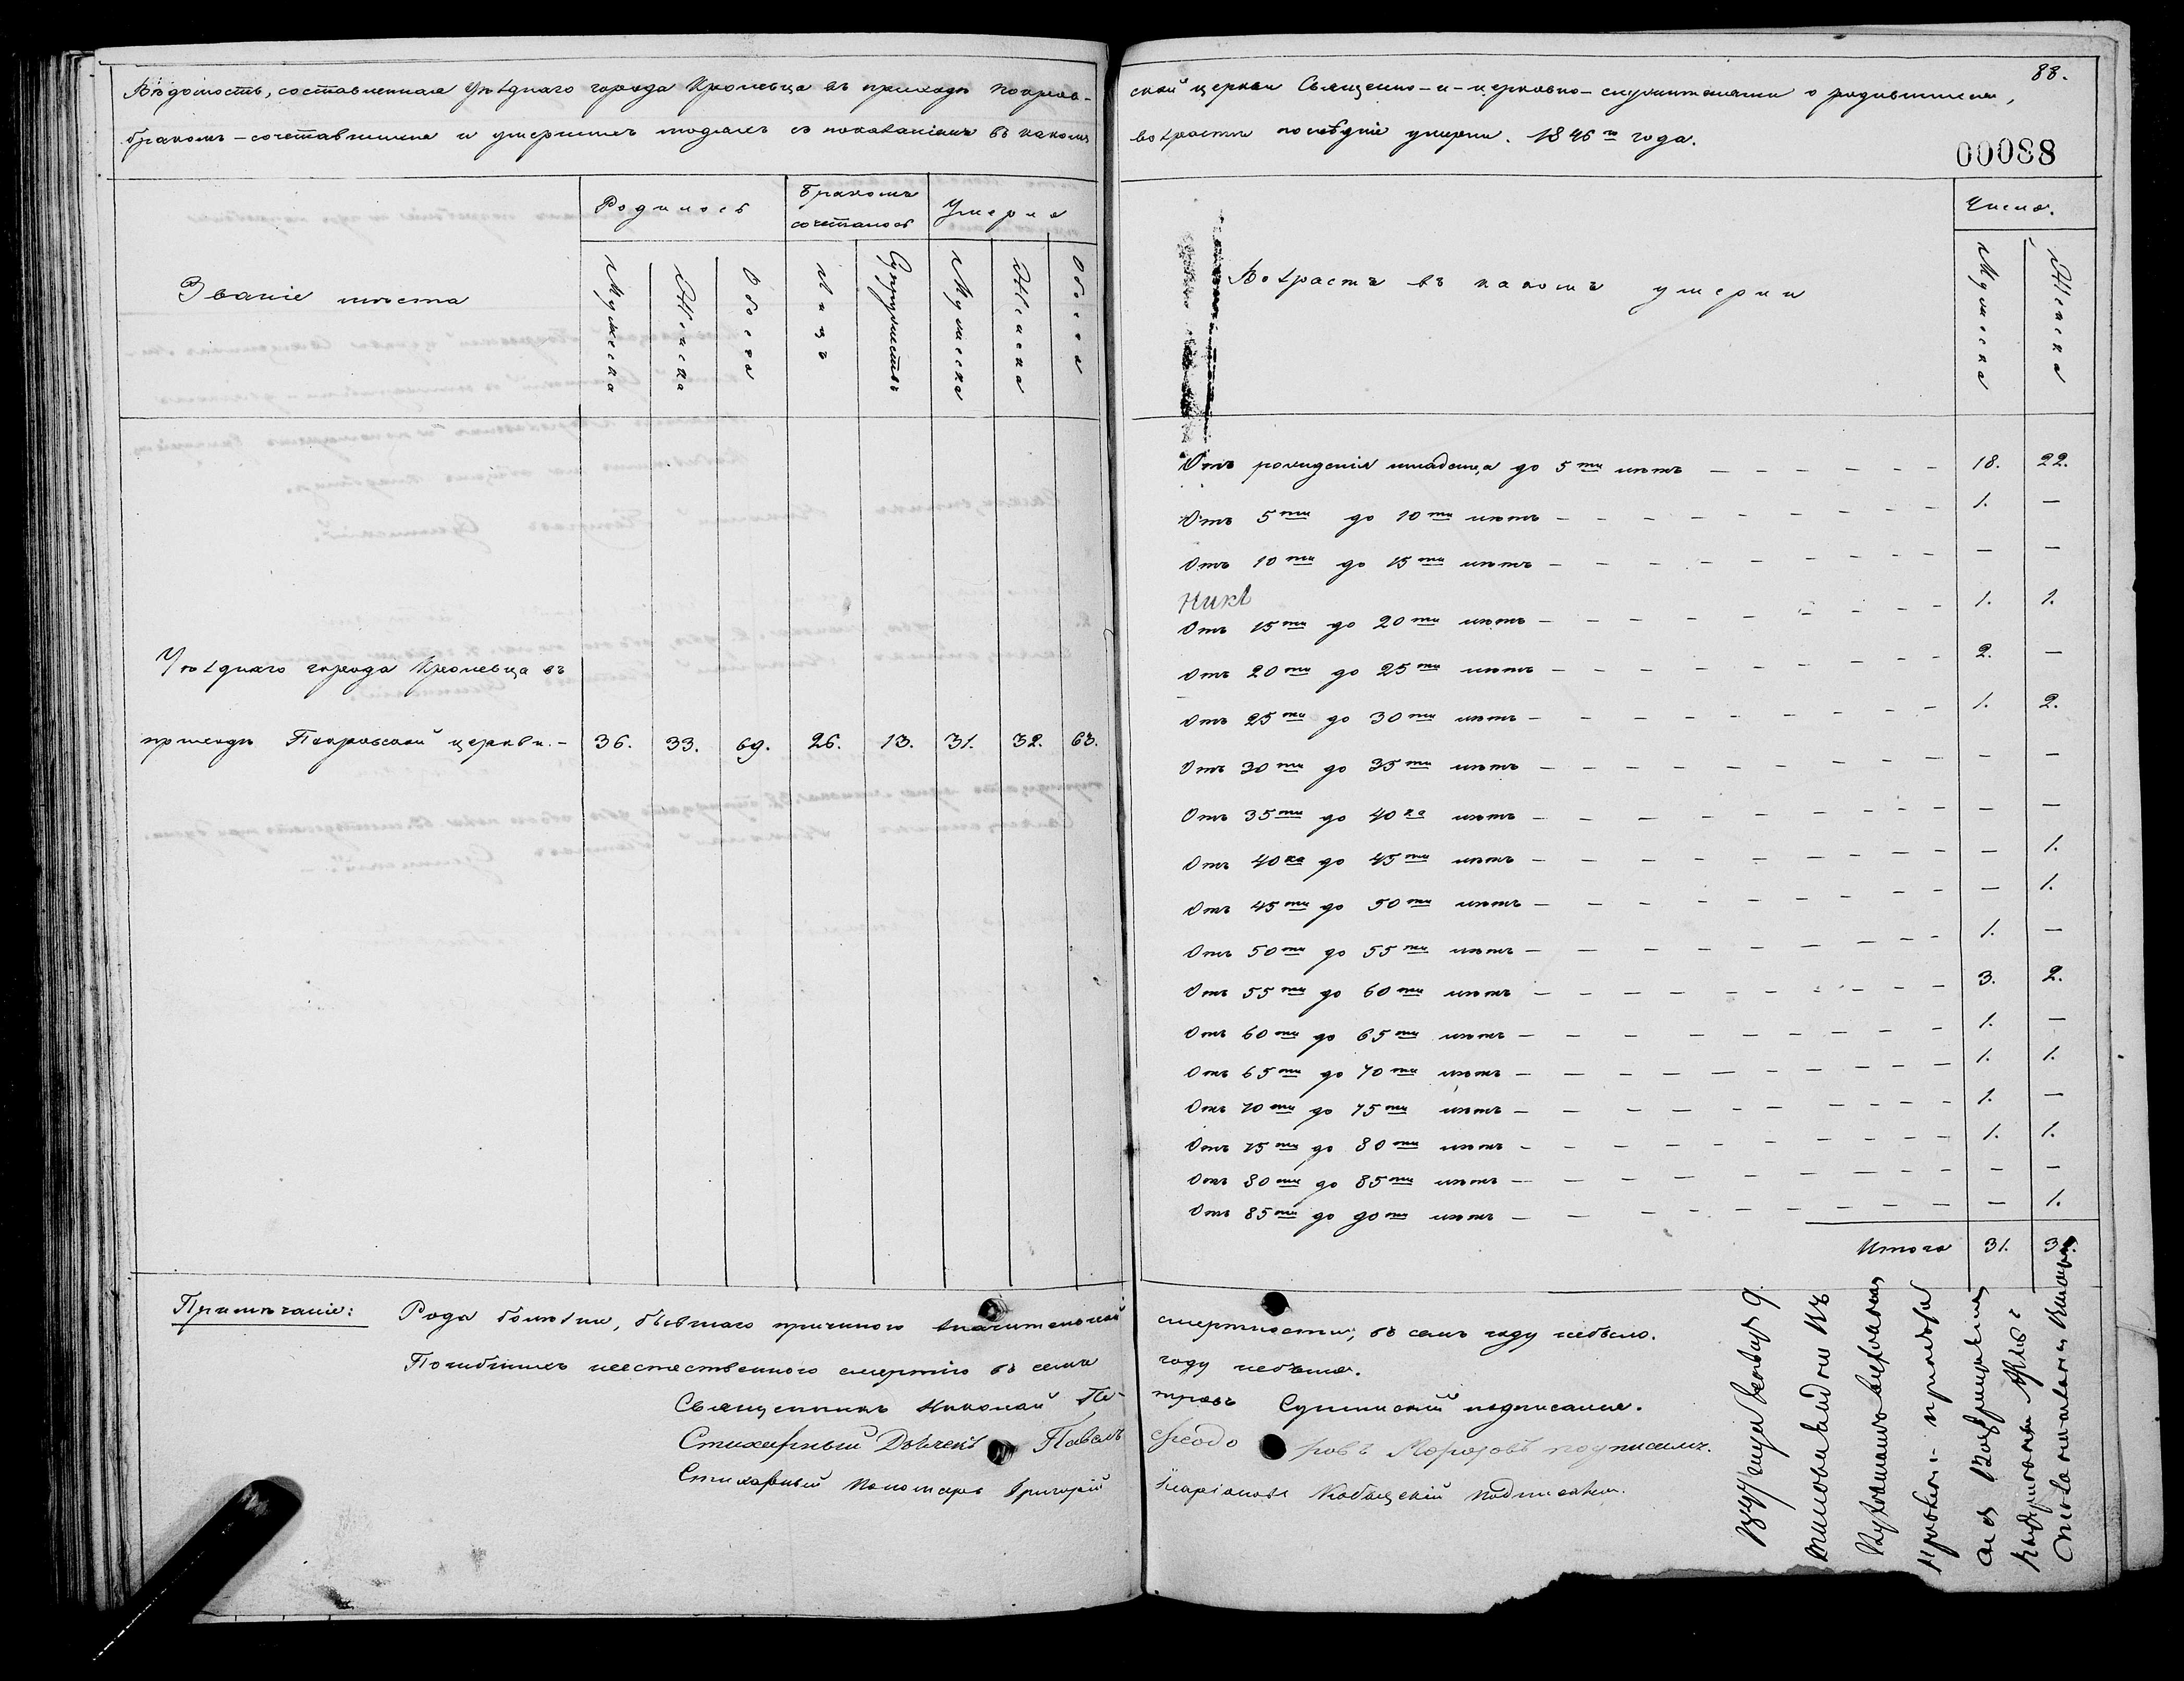 88.
Вѣдомость, составленная Уѣзднаго города Кролевца въ приходѣ Покров-
ской церкви Священно-и-церковно-служителями о родившихся,
бракомъ-сочетавшихся и умершихъ людяхъ съ показаніемъ въ какомъ
возрастѣ послѣдніе умерли. 1845го года.
00088
Званіе мѣста
Родилось
Мужеска
Женска
Обоего
Бракомъ
сочеталось
Лицъ
Супружествъ
Умерло
Мужеска
Женска
Обоего
Уѣзднаго города Кролевца въ
приходѣ Покровской церкви.- 36. 33. 69. 26. 13. 31. 32. 63.
Возрастъ въ какомъ умерли
Число.
Мужеска
Женска
Отъ рожденія младенца до 5ти лѣтъ - - - - - - 18. 22.
Отъ 5ти до 10ти лѣтъ - - - - - - - - - 1. -
Отъ 10ти до 15ти лѣтъ - - - - - - - - - - -
Отъ 15ти до 20ти лѣтъ - - - - - - - - - 1. 1.
Отъ 20ти до 25ти лѣтъ - - - - - - - - - 2. -
Отъ 25ти до 30ти лѣтъ - - - - - - - - - 1. 2.
Отъ 30ти до 35ти лѣтъ - - - - - - - - - - -
Отъ 35ти до 40ка лѣтъ - - - - - - - - - - -
Отъ 40ка до 45ти лѣтъ - - - - - - - - - - 1.
Отъ 45ти до 50ти лѣтъ - - - - - - - - - - 1.
Отъ 50ти до 55ти лѣтъ - - - - - - - - - 1. -
Отъ 55ти до 60ти лѣтъ - - - - - - - - - 3. 2.
Отъ 60ти до 65ти лѣтъ - - - - - - - - - 1. -
Отъ 65ти до 70ти лѣтъ - - - - - - - - - 1. 1.
Отъ 70ти до 75ти лѣтъ - - - - - - - - - 1. -
Отъ 75ти до 80ти лѣтъ - - - - - - - - - 1. 1.
Отъ 80ти до 85ти лѣтъ - - - - - - - - - - -
Отъ 85ти до 90ти лѣтъ - - - - - - - - - - 1.
Итого 31.
Примѣчаніе: Рода болѣзни, бывшаго причиною значительной смертности, въ семъ году небыло.
Погибшихъ неестественною смертію въ семъ году небыло.
Священникъ Николай Петровъ Сушинскій подписался.
Стихарный Дьячекъ Павелъ Ѳеодоровъ Морозовъ подписался.
Стихарный Пономарь Григорій подписался.